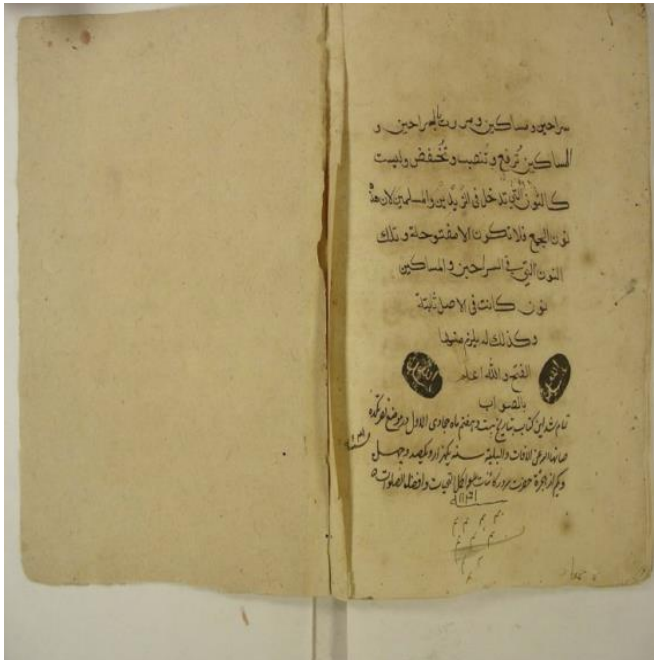 سراحين ومساكين ومررت بالسراحين و
المساكين تُرفع وتُنصب وتُخفض وليست
كالنون التي تدخل في الزيدين والمسلمين لان هذه
نون الجمع فلا تكون الا مفتوحة و تلك
النون التي في السراحين والمساكين
نون كانت في الاصل ثابتة
وكذلك لم يلزم منها
الفتح والله اعلم
بالصواب
تمام شد اين كتاب بتاريخ بيست وهفتم ماه جمادى الاول در موضع
صانها الله عن الافات والبلية سنه يكهزار ويكصد وچهل
ويكم از هجرة حضرت سرور كائنات عليه اكمل التحيات وافضل الصلوات
۱۱۴۱